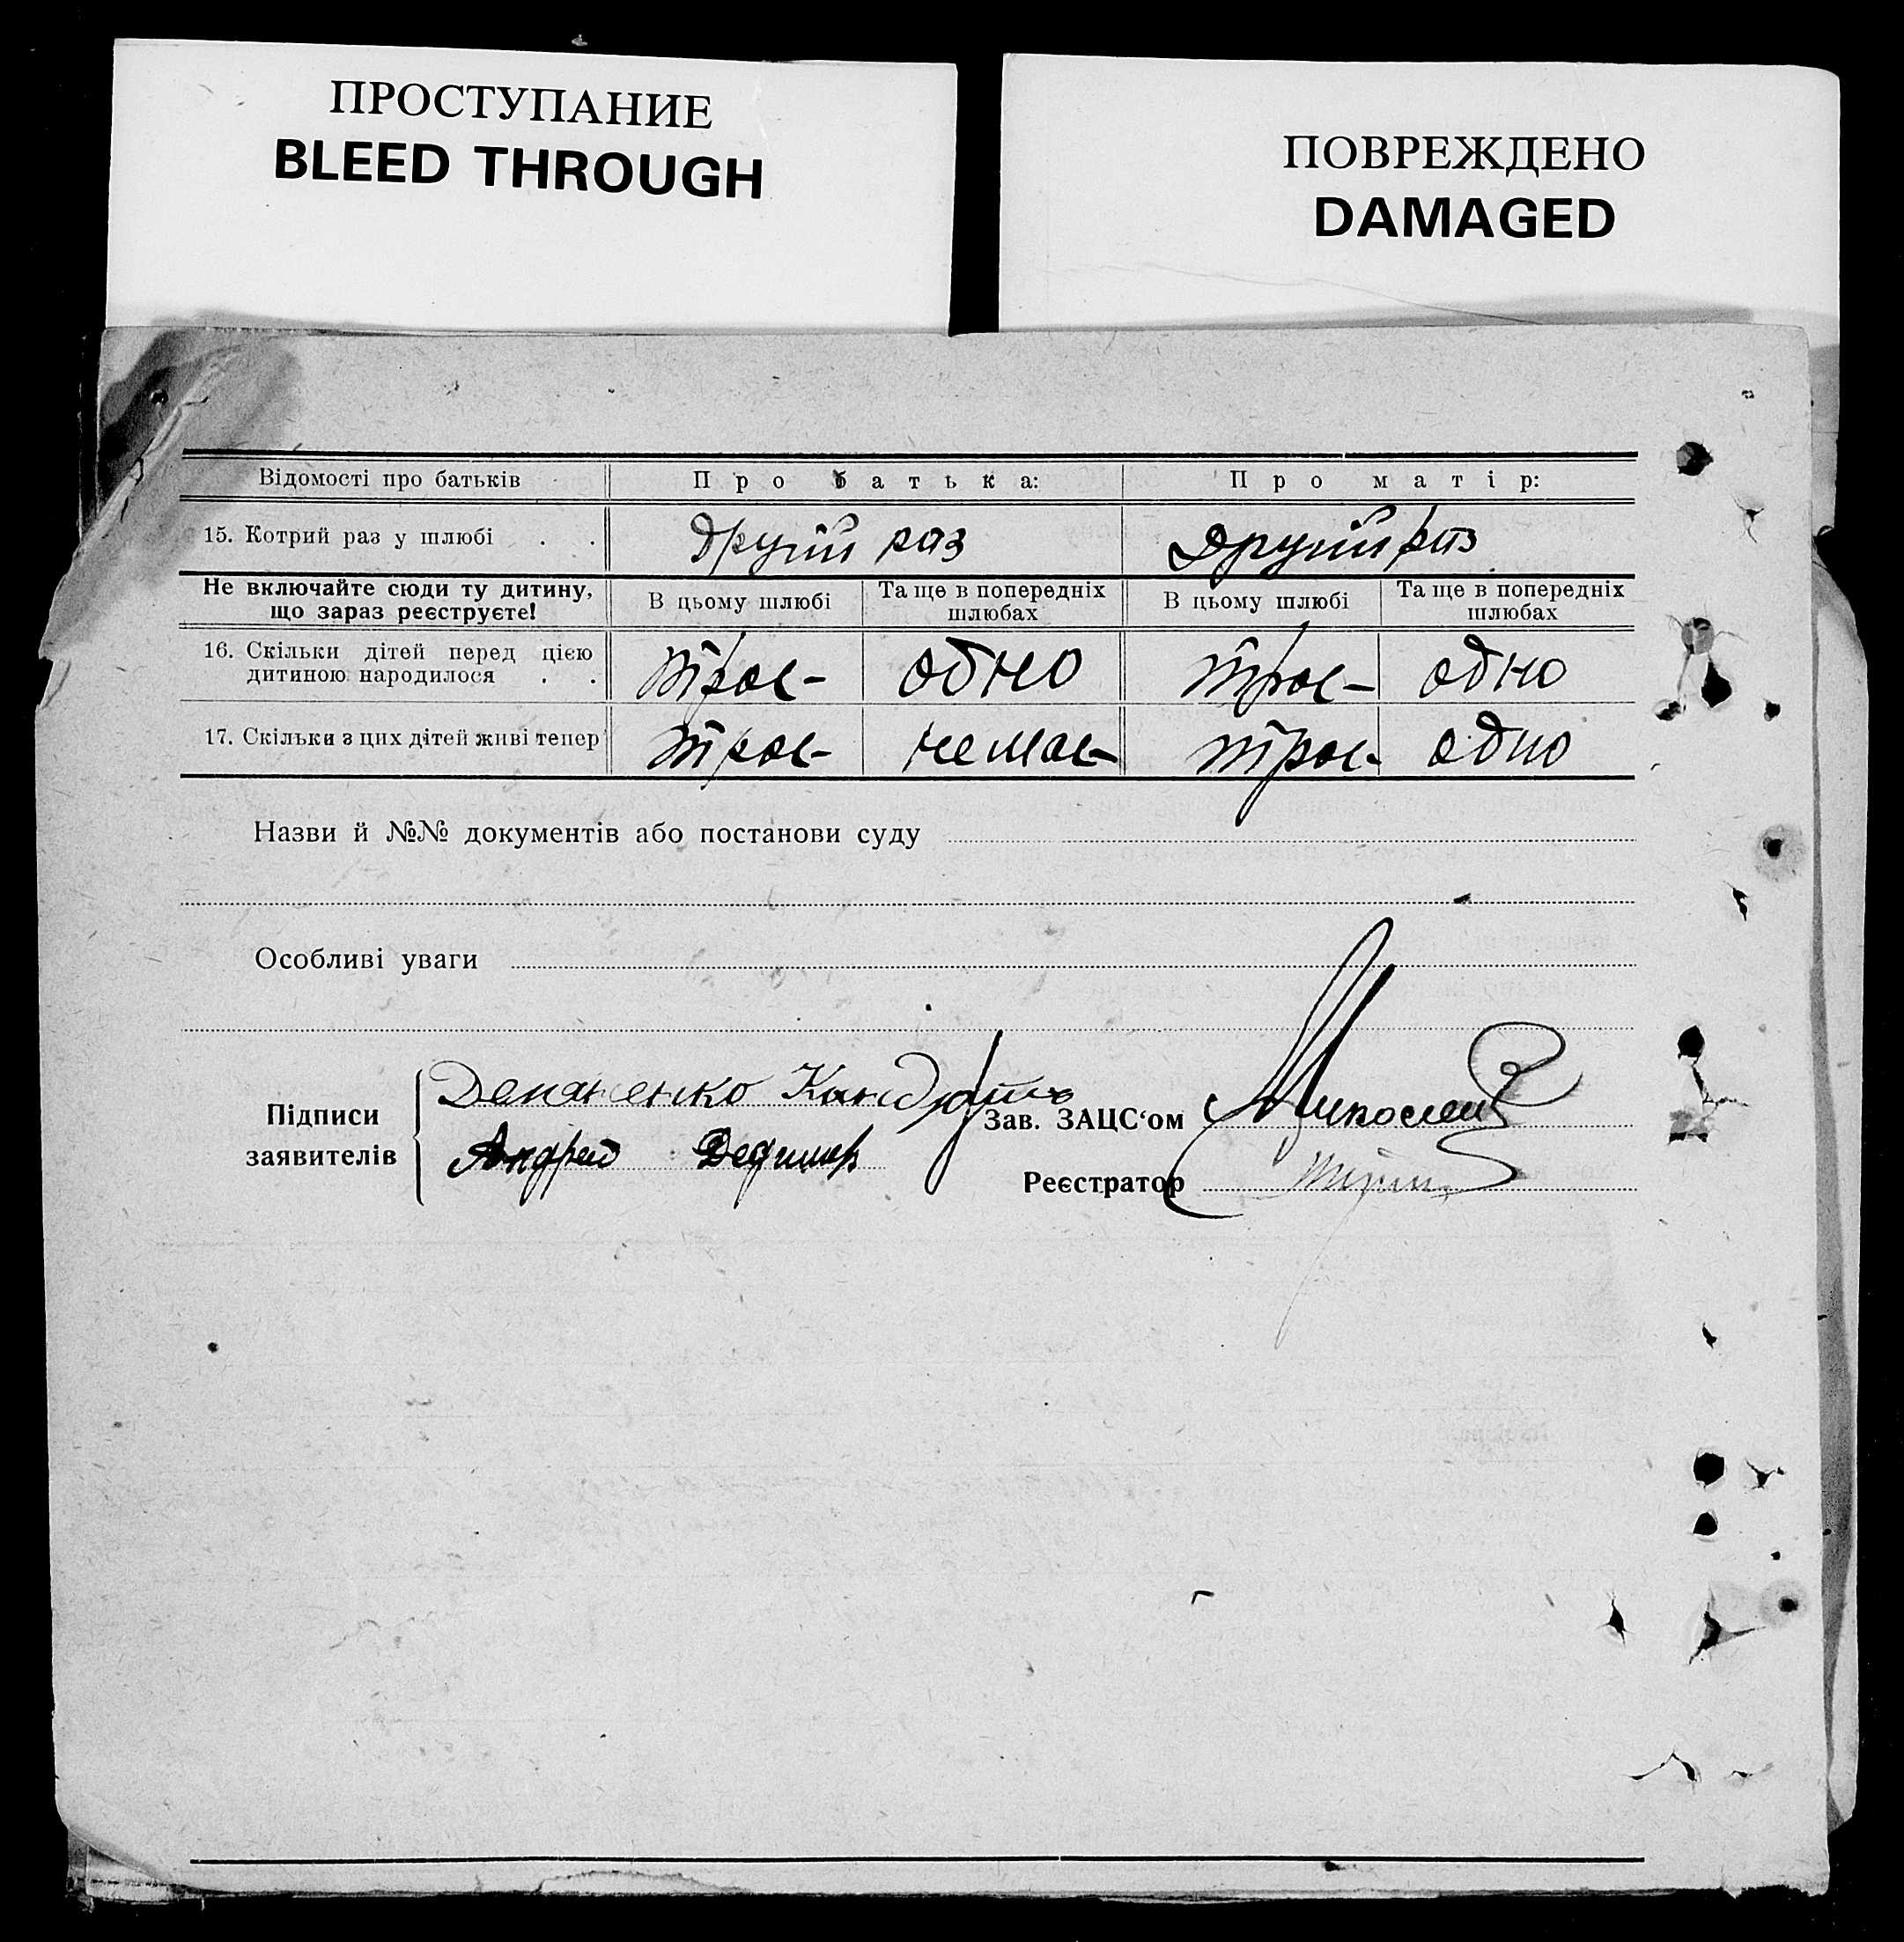 ПРОСТУПАНИЕ
BLEED THROUGH
ПОВРЕЖДЕНО
DAMAGED
Відомості про батьків Про батька: Про матір:
15. Котрий раз у шлюбі . . Другий раз Другий раз
Не включайте сюди ту дитину, що зараз реєструєте! В цьому шлюбі Та ще в попередніх шлюбах В цьому шлюбі Та ще в попередніх шлюбах
16. Скільки дітей перед цією дитиною народилося . . троє одно троє одно
17. Скільки з цих дітей живі тепер троє немає троє одно
Назви й №№ документів або постанови суду
Особливі уваги
Підписи заявителів
Андрей
Зав. ЗАЦС‘ом
Реєстратор